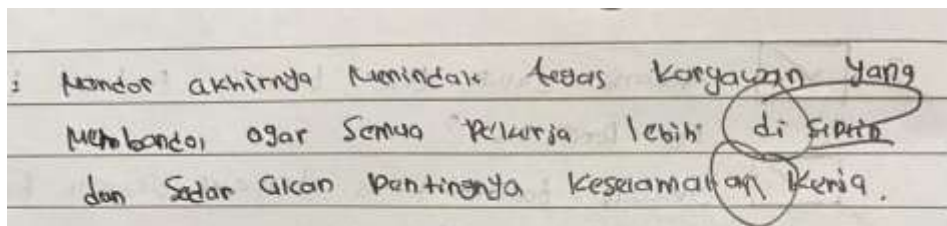 : Mandor akhirnya Menindak tegas Karyawan yang
Membandel agar Semua Pekerja lebih di siplin
dan Sadar akan Pentingnya Keselamatan Kerja.